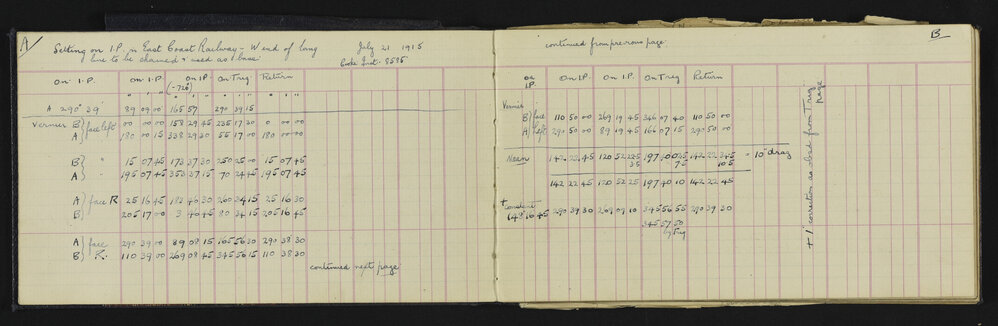 A
Setting on I.P. in East Coast Railway - W end of long
line to be chained & used as base
July 21 1915
Cooke Inst. 8585
On I.P. on I.P. on I.P. on Trig Return
A 290° 39' 89 09 00 165 57 290 39 15
Vernier B} face left 00 00 00 158 29 45 235 17 30 0 00 00
A} 180 00 15 338 29 30 55 17 00 180 00 00
B} " 15 07 45 173 37 30 250 25 00 15 07 45
A} " 195 07 45 353 37 15 70 24 45 195 07 45
A} face R 25 16 45 183 46 30 260 34 15 25 16 30
B} 205 17 00 3 46 45 80 34 15 205 16 45
A} face 290 39 00 89 08 15 165 56 30 290 38 30
B} R. 110 39 00 269 08 45 345 56 15 110 38 30
continued next page
B
continued from previous page
on I.P. on I.P. on I.P. on Trig Return
Vernier
B} face 110 50 00 269 19 45 346 07 40 110 50 00
A} left 290 50 00 89 19 45 166 07 15 290 50 00
Mean 142.22.45 120 52 197 40 142.22 = 10" drag
142 22 45 120 52 25 197 40 10 142 22 45
+ constant
148 16 45 290 39 30 269 09 10 345 56 55 290 39 30
345 57 50
by Trig
+ 1' correction as obsd from Trig
page